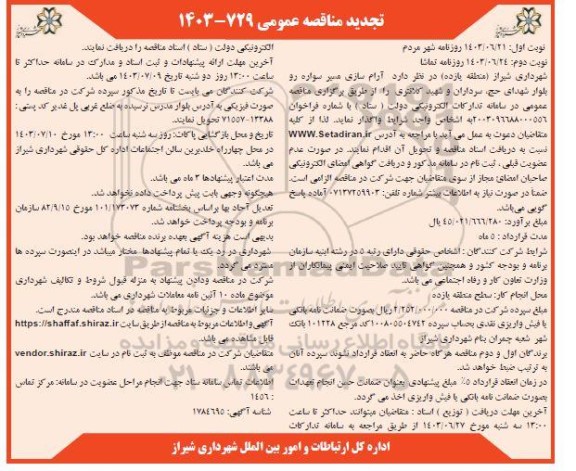 تجدید مناقصه عمومی ۷۲۹-۱۴۰۳
نوبت اول: ۱۴۰۳/۰۶/۲۱ روزنامه شهر مردم
نوبت دوم: ۱۴۰۳/۰۶/۲۴ روزنامه تماشا
شهرداری شیراز (منطقه یازده) در نظر دارد آرام سازی مسیر سواره رو
بلوار شهدای حج، سرداران و شهید کلاهتری را از طریق برگزاری مناقصه
عمومی در سامانه تدارکات الکترونیکی دولت ( ستاد ) با شماره فراخوان
۲۰۰۳۰۹۶۶۸۸۰۰۰۵۵۶ به اشخاص واجد شرایط واگذار نمایند. لذا از کلیه
متقاضیان دعوت به عمل می آید با مراجعه به آدرس WWW.Setadiran.ir
نسبت به دریافت اسناد مناقصه و تحویل آن اقدام نمایند. در صورت عدم
عضویت قبلی ، ثبت نام در سامانه مذکور و دریافت گواهی امضای الکترونیکی
صاحبان امضای مجاز از سوی متقاضیان جهت شرکت در مناقصه الزامی است.
ضمنا در صورت نیاز به اطلاعات بیشتر شماره تلفن: ۰۷۱۳۷۲۵۹۹۰۳ آماده پاسخ
گویی می‌باشد.
مبلغ برآورد: ۴۵/۰۲۱/۶۶۶/۲۸۰ ریال
مدت قرارداد : ۵ ماه
شرایط شرکت کنندگان : اشخاص حقوقی دارای رتبه ۵ در رشته ابنیه سازمان
برنامه و بودجه کشور و همچنین گواهی تایید صلاحیت ایمنی پیمانکاران از
وزارت تعاون کار و رفاه اجتماعی می باشد.
محل انجام کار: سطح منطقه یازده
مبلغ سپرده شرکت در مناقصه ۲/۲۵۲/۰۰۰/۰۰۰ ریال بصورت ضمانت نامه بانکی
یا فیش واریزی نقدی بحساب سپرده ۱۰۰۸۰۵۵۰۴۷۴۲ کد مرجع ۱۰۱۲۲۸ بانک
شهر شعبه چمران بنام شهرداری شیراز
برندگان اول و دوم مناقصه هرگاه حاضر به انعقاد قرارداد نشوند سپرده آنان
به ترتیب ضبط خواهد شد.
در زمان انعقاد قرارداد ۵٪ مبلغ پیشنهادی بعنوان ضمانت حسن انجام تعهدات
بصورت ضمانت نامه بانکی یا فیش واریزی اخذ می گردد.
آخرین مهلت دریافت ( توزیع ) اسناد : متقاضیان میتوانند حداکثر تا ساعت
۱۳:۰۰ سه شنبه مورخ ۱۴۰۳/۰۶/۲۷ از طریق مراجعه به سامانه تدارکات
الکترونیکی دولت ( ستاد ) اسناد مناقصه را دریافت نمایند.
آخرین مهلت ارائه پیشنهادات و ثبت اسناد و مدارک در سامانه حداکثر تا
ساعت ۱۳:۰۰ روز دو شنبه تاریخ ۱۴۰۳/۰۷/۰۹ می باشد.
شرکت کنندگان می بایست تا تاریخ مذکور سپرده شرکت در مناقصه را به
صورت فیزیکی به آدرس بلوار مدرس نرسیده به ضلع غربی پل غدیر کد پستی :
۷۱۵۵۷-۱۳۳۸۸ تحویل نمایند.
تاریخ و محل بازگشایی پاکات: روز سه شنبه ساعت ۱۳:۰۰ مورخ ۱۴۰۳/۰۷/۱۰
در محل چهارراه خلدبرین سالن اجتماعات اداره کل حقوقی شهرداری شیراز
می باشد.
مدت اعتبار پیشنهادها ۳ ماه می باشد.
هیچگونه وجهی بابت پیش پرداخت داده نخواهد شد.
تعدیل آحاد بها براساس بخشنامه شماره ۱۰۱/۱۷۳۰۷۳ مورخ ۸۲/۹/۱۵ سازمان
برنامه و بودجه پرداخت خواهد شد.
بدیهی است هزینه آگهی بعهده برنده مناقصه خواهد بود.
شهرداری در رد یک یا تمام پیشنهادها مختار میباشد در اینصورت سپرده ها
مسترد می گردد.
شرکت در مناقصه و دادن پیشنهاد به منزله قبول شروط و تکالیف شهرداری
موضوع ماده ۱۰ آئین نامه معاملات شهرداری می باشد.
سایر اطلاعات و جزئیات مربوط به مناقصه در اسناد مناقصه مندرج است.
آگهی و اطلاعات مربوط به مناقصه از طریق سایت https://shaffaf.shiraz.ir
قابل مشاهده می باشد.
متقاضیان شرکت در مناقصه موظف به ثبت نام در سایت vendor.shiraz.ir
می باشند.
اطلاعات تماس سامانه ستاد جهت انجام مراحل عضویت در سامانه: مرکز تماس
: ۱۴۵۶
شناسه آگهی: ۱۷۸۴۶۹۵
اداره کل ارتباطات و امور بین الملل شهرداری شیراز